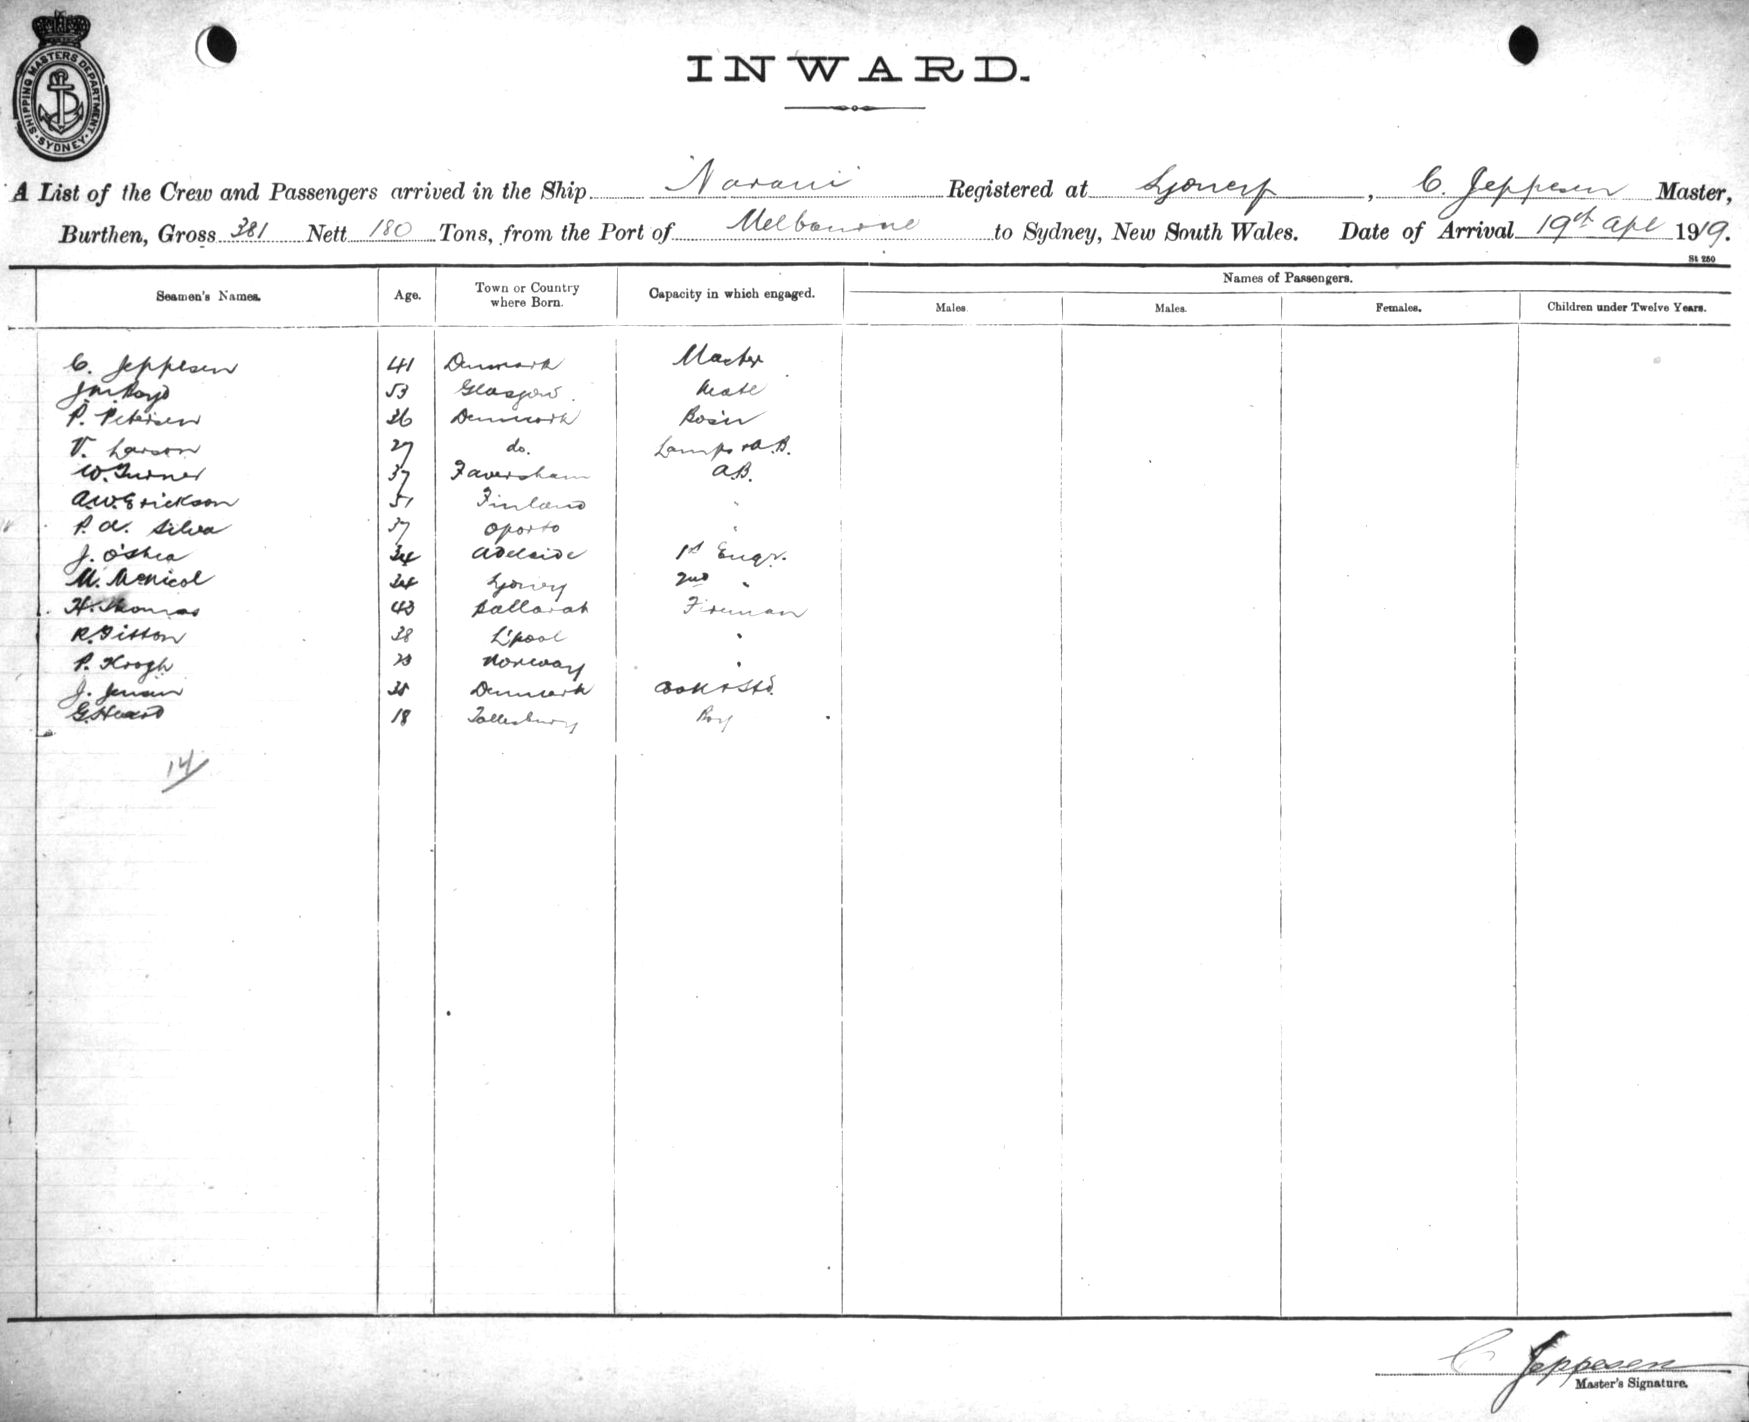 SHIPPING MASTERS DEPARTMENT
SYDNEY
INWARD.
A List of the Crew and Passengers arrived in the Ship Narani Registered at Sydney, C. Jeppesen Master,
Burthen, Gross 381 Nett 180 Tons, from the Port of Melbourne to Sydney, New South Wales. Date of Arrival 19th Apl 1919.
St 250
Names of Passengers.
Seamen's Names. Age. Town or Country where Born. Capacity in which engaged. Males. Males. Females. Children under Twelve Years.
C. Jeppesen 41 Denmark Master
J. McBoyd 53 Glasgow. Mate
P. Petersen 36 Denmark Bosin
V. Larson 27 do. Lamps & A.B.
W. Turner 37 Faversham A.B.
A.W. Erickson 51 Finland "
P. d. Silva 37 Oporto "
J. O'Shea 34 Adelaide 1st Engr.
M. McNicol 34 Sydney 2nd "
H. Thomas 43 Ballarat Fireman
R. Fitton 38 L'pool "
P. Krogh Norway "
J. Jensen Denmark Cook & Std.
G. Heard 18 Tollesbury Boy
14
C Jeppesen
Master's Signature.